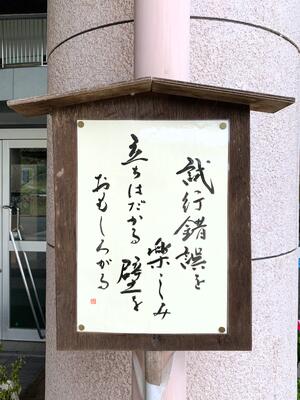 試行錯誤を
楽しみ
立ちはだかる
壁を
おもしろがる